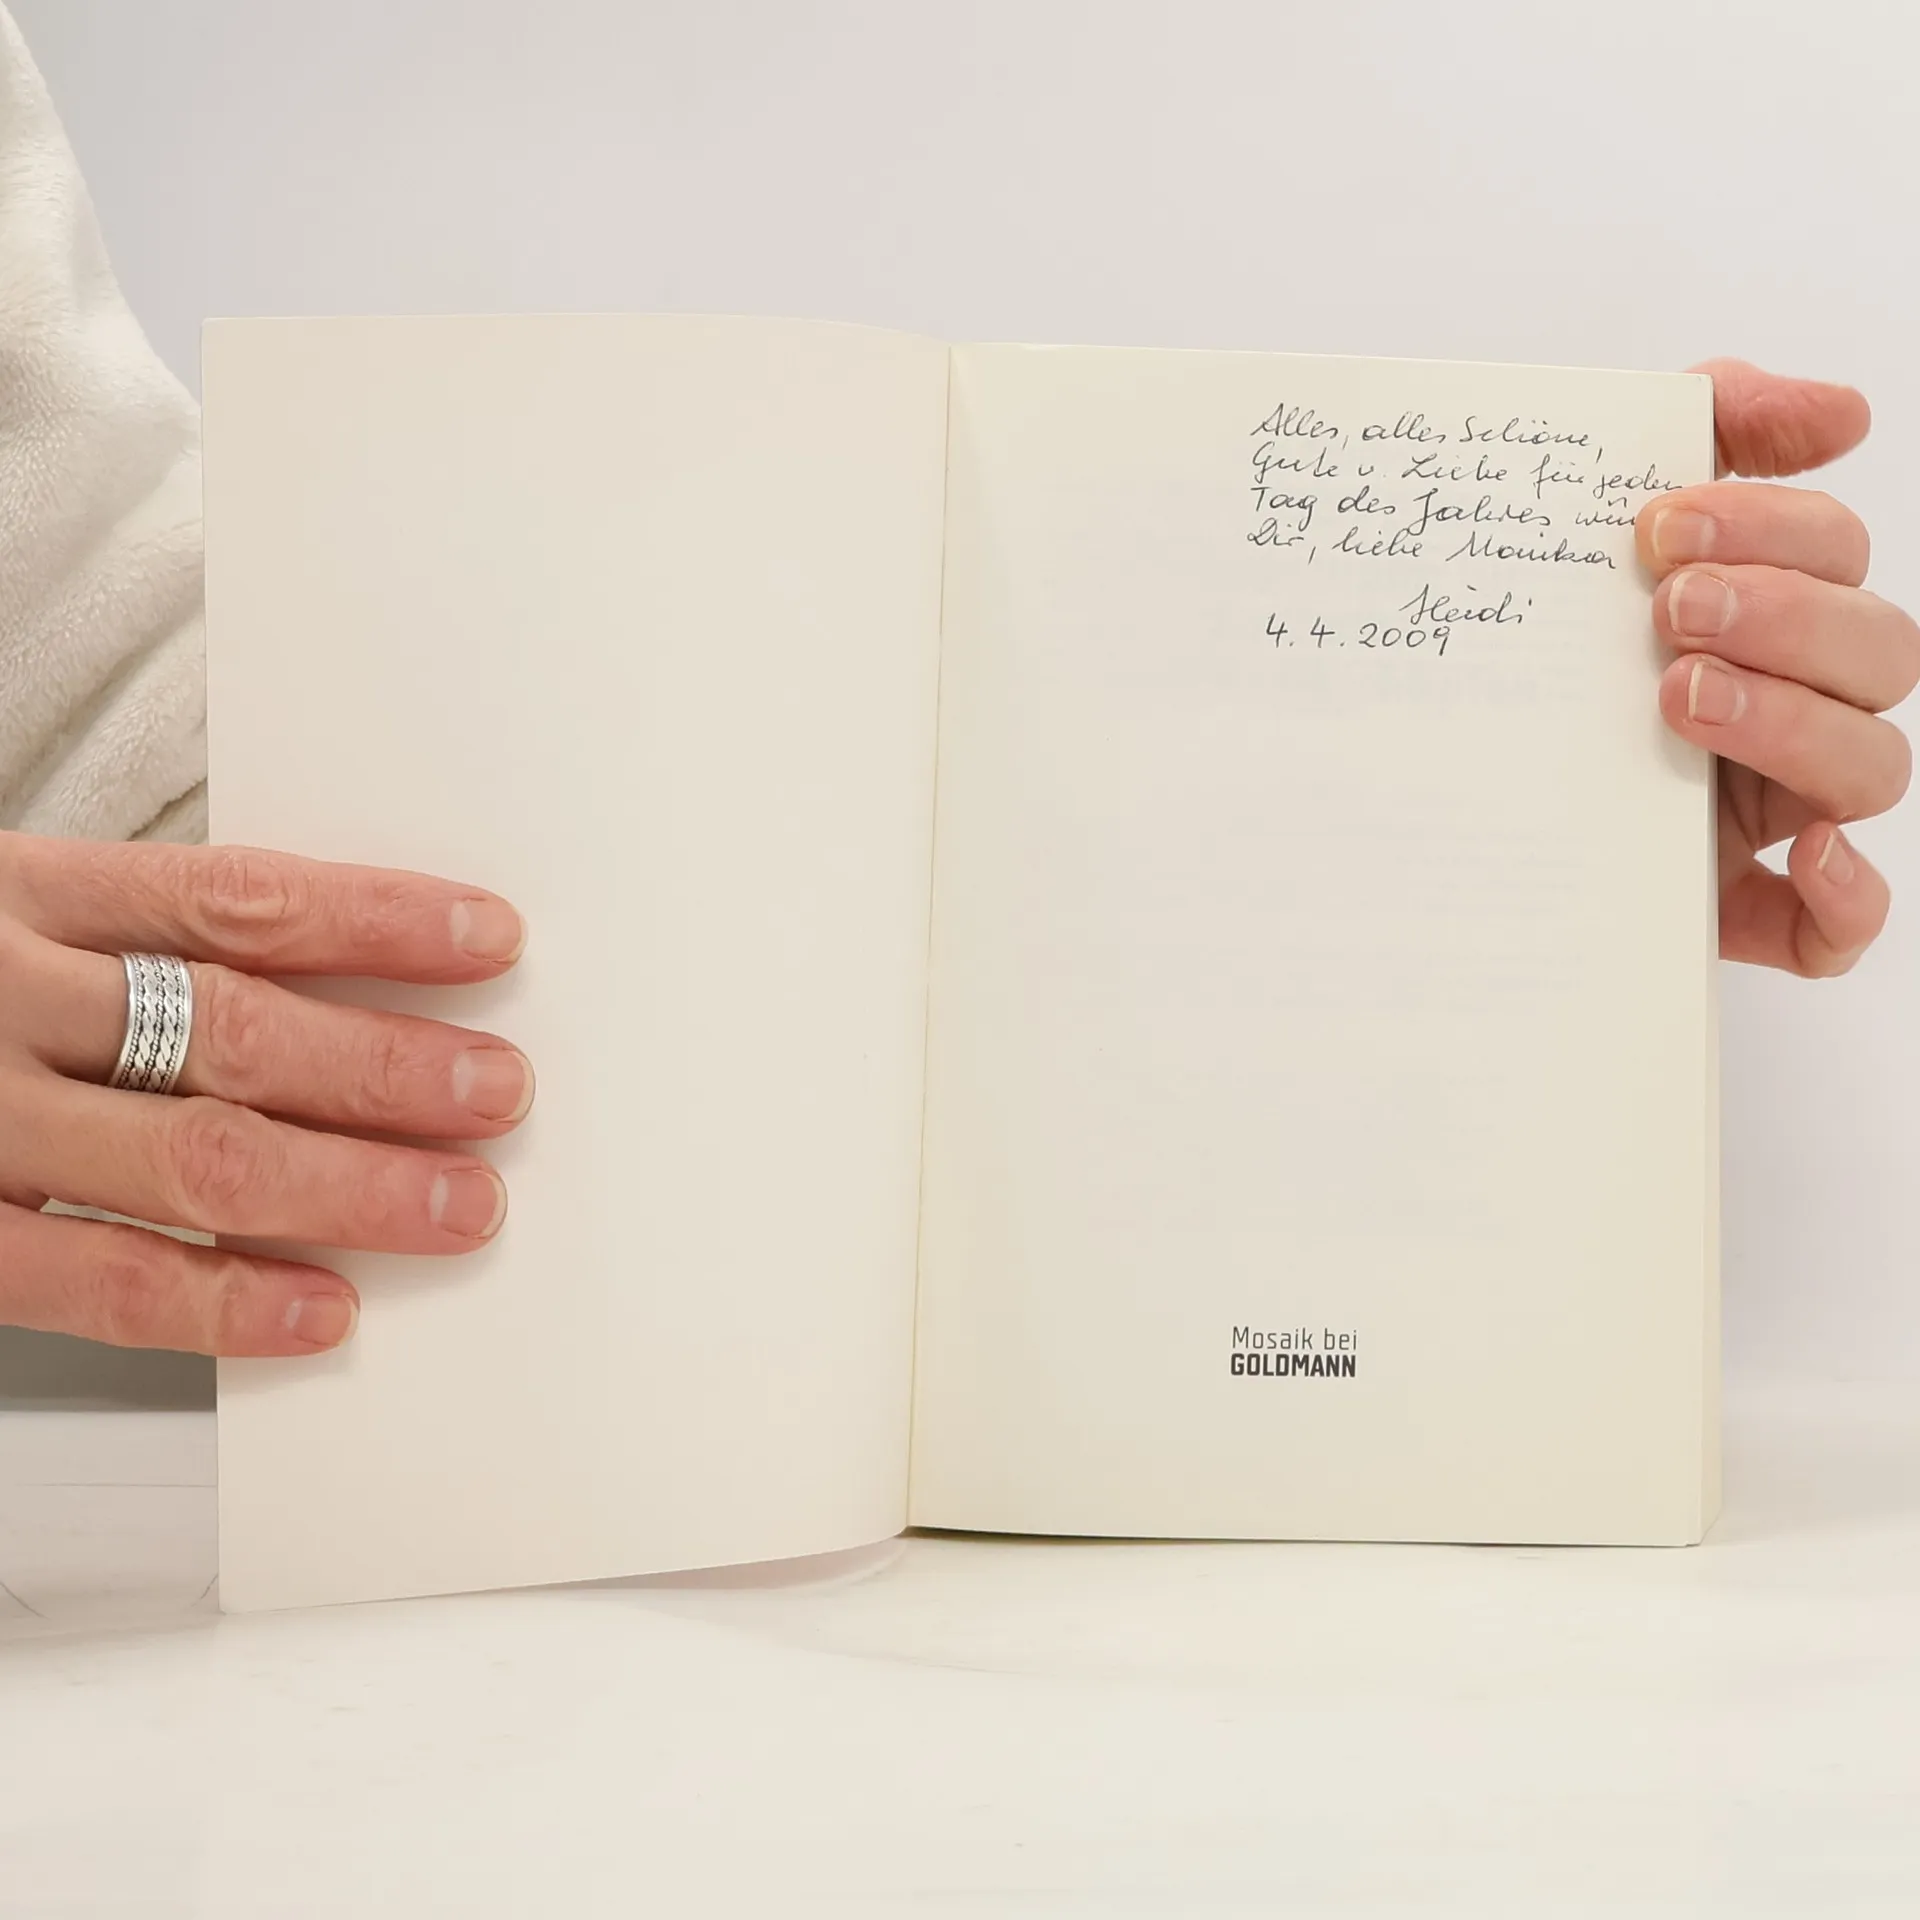 Alles, alles Schöne,
Gute u. Liebe für jeden
Tag des Jahres
Dir, liebe Monika
Heidi
4. 4. 2009
Mosaik bei
GOLDMANN